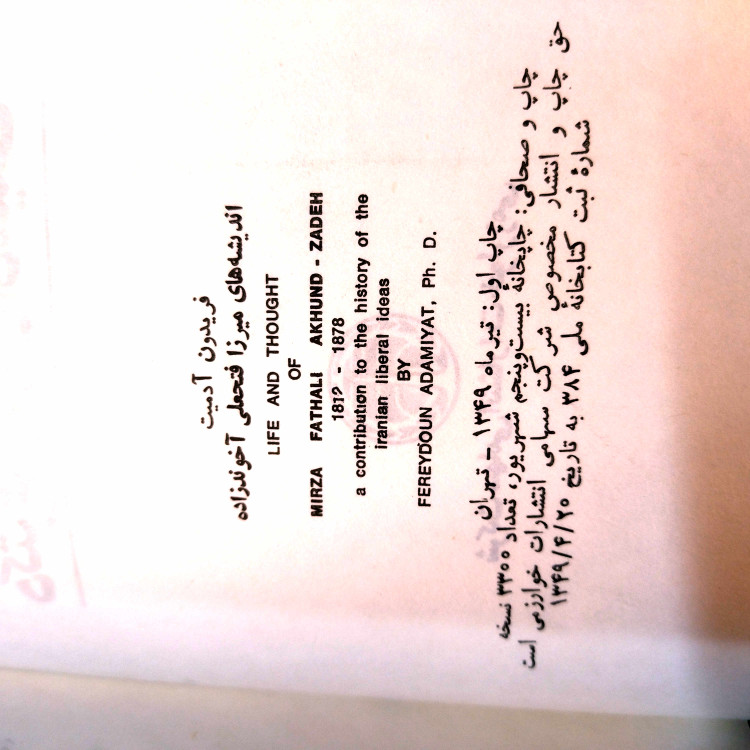 فریدون آدمیت
اندیشه‌های میرزا فتحعلی آخوندزاده
LIFE AND THOUGHT
OF
MIRZA FATHALI AKHUND - ZADEH
1812 - 1878
a contribution to the history of the
iranian liberal ideas
BY
FEREYDOUN ADAMIYAT, Ph. D.
چاپ اول: تیرماه ۱۳۴۹ - تهران
چاپ و صحافی: چاپخانهٔ بیست‌وپنجم شهریور، تعداد ۳۳۰۰ نسخه
حق چاپ و انتشار مخصوص شرکت سهامی انتشارات خوارزمی است
شمارهٔ ثبت کتابخانهٔ ملی ۳۸۴ به تاریخ ۱۳۴۹/۴/۲۰